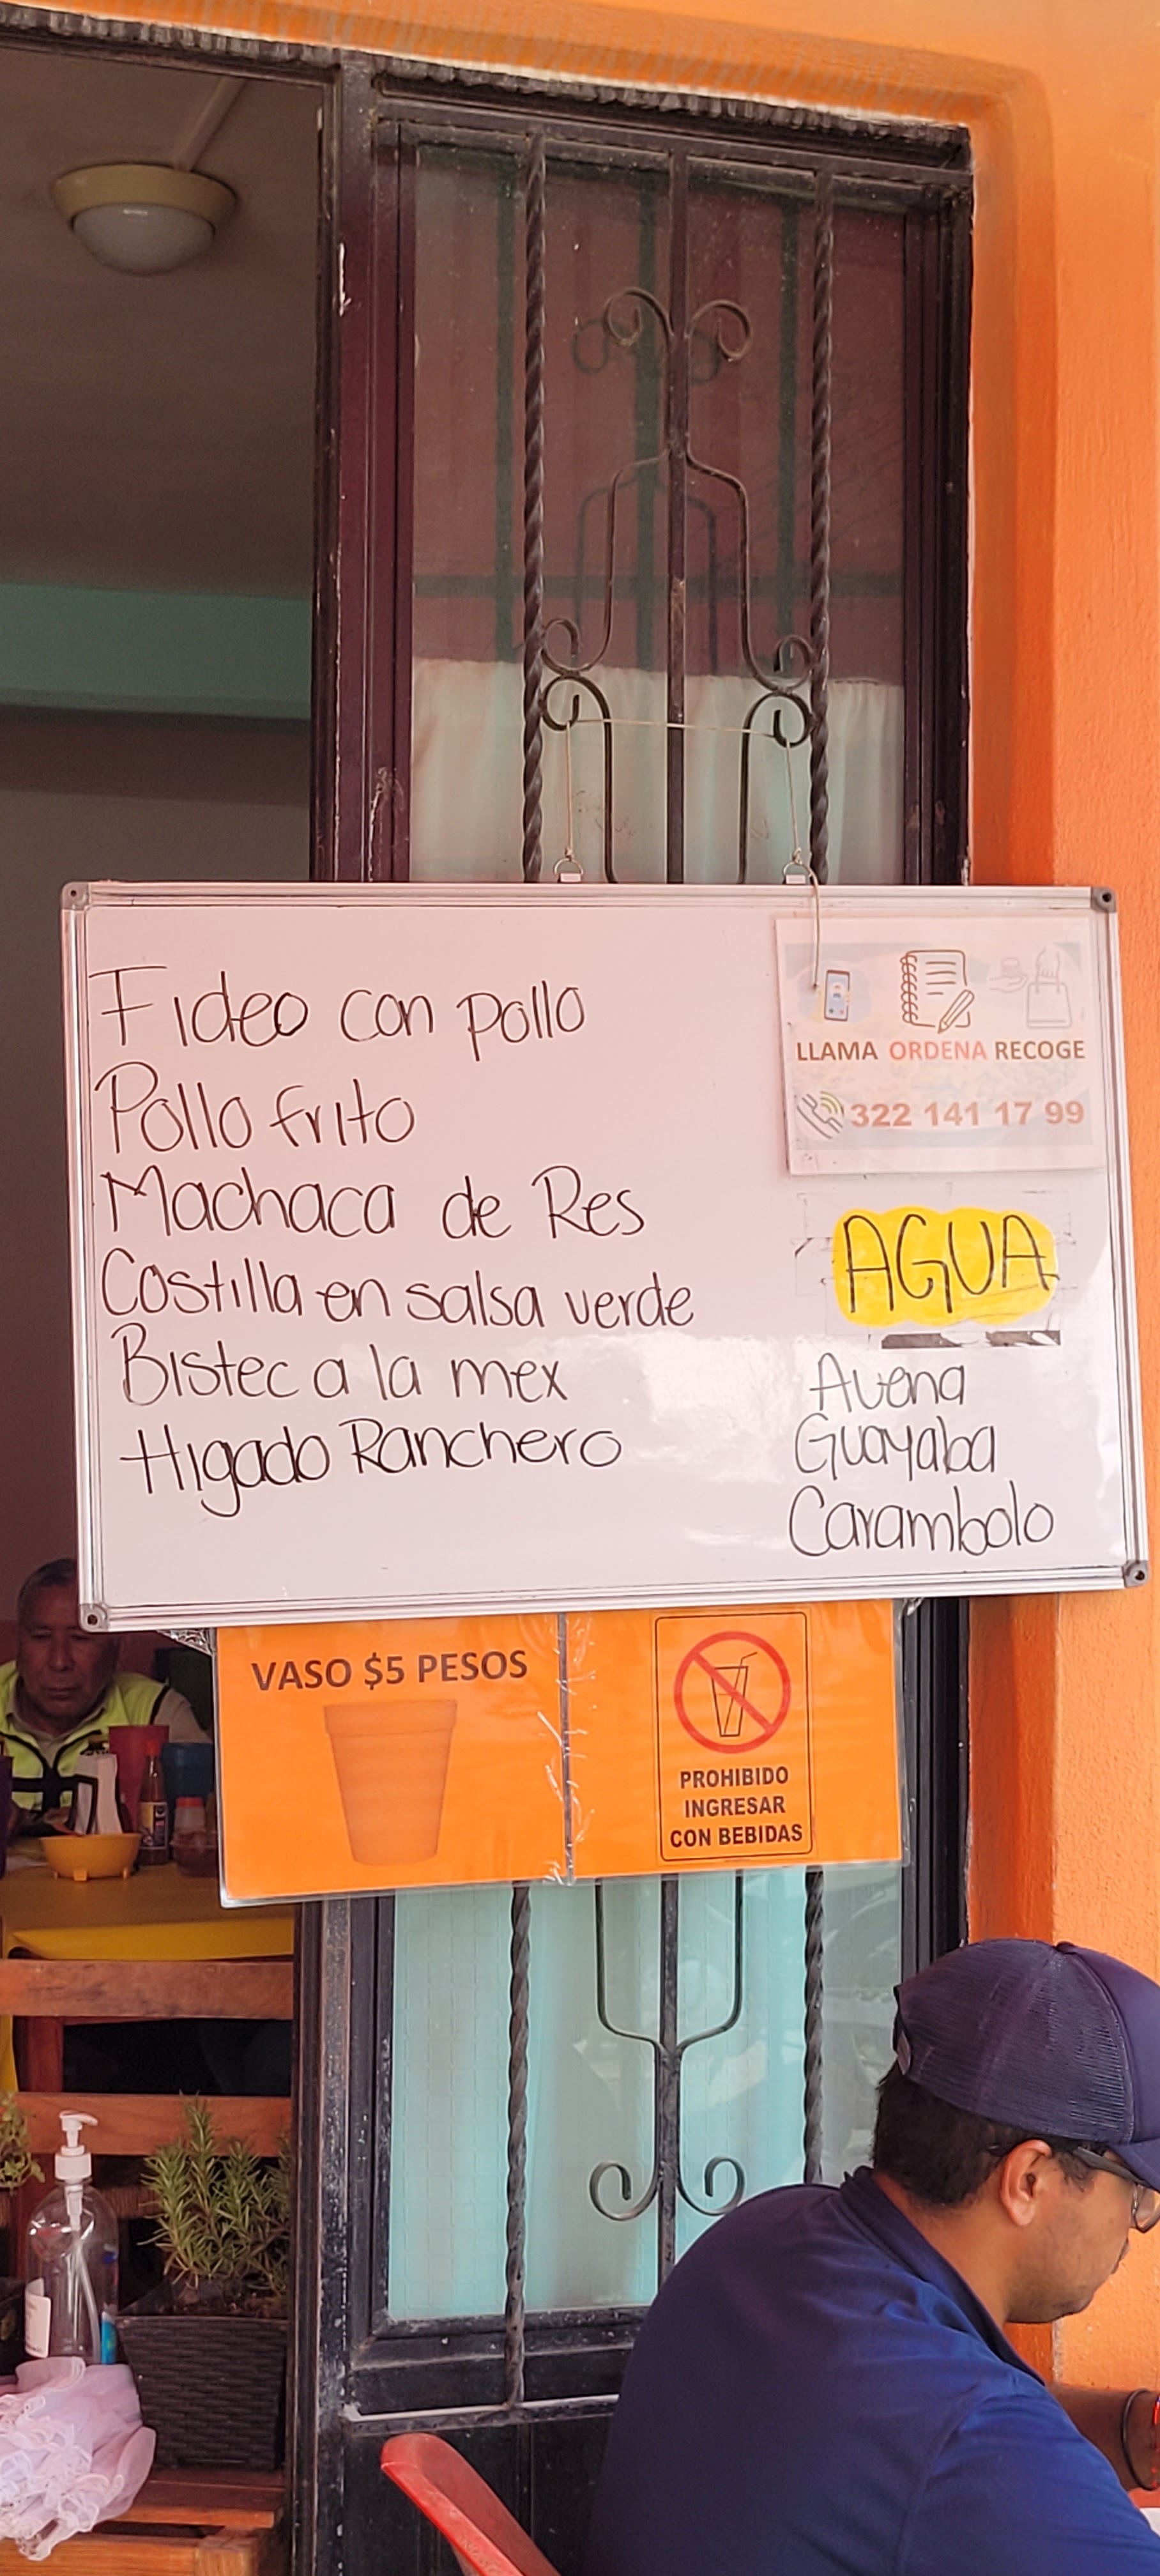 Fideo con pollo
Pollo frito
Machaca de Res
Costilla en salsa verde
Bistec a la mex
Higado Ranchero
LLAMA ORDENA RECOGE
322 141 17 99
AGUA
Avena
Guayaba
Carambolo
VASO $5 PESOS
PROHIBIDO
INGRESAR
CON BEBIDAS